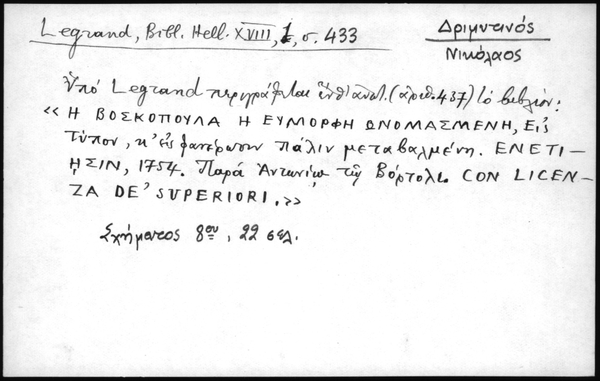 Legrand, Bibl. Hell. XVIII, 1, σ. 433
Δριμυτινός
Νικόλαος
Ὑπό Legrand περιγράφεται ἐνθ' ἀνωτ. (ἀριθ. 437) τό βιβλίον:
«Η ΒΟΣΚΟΠΟΥΛΑ Η ΕΥΜΟΡΦΗ ΩΝΟΜΑΣΜΕΝΗ, Εἰς
Τύπον, κ' εἰς φανέρωσιν πάλιν μεταβαλμένη. ΕΝΕΤΙ-
ῌΣΙΝ, 1754. Παρά Ἀντωνίῳ τῷ Βόρτολι. CON LICEN-
ZA DE' SUPERIORI.»
Σχήματος 8ου, 22 σελ.